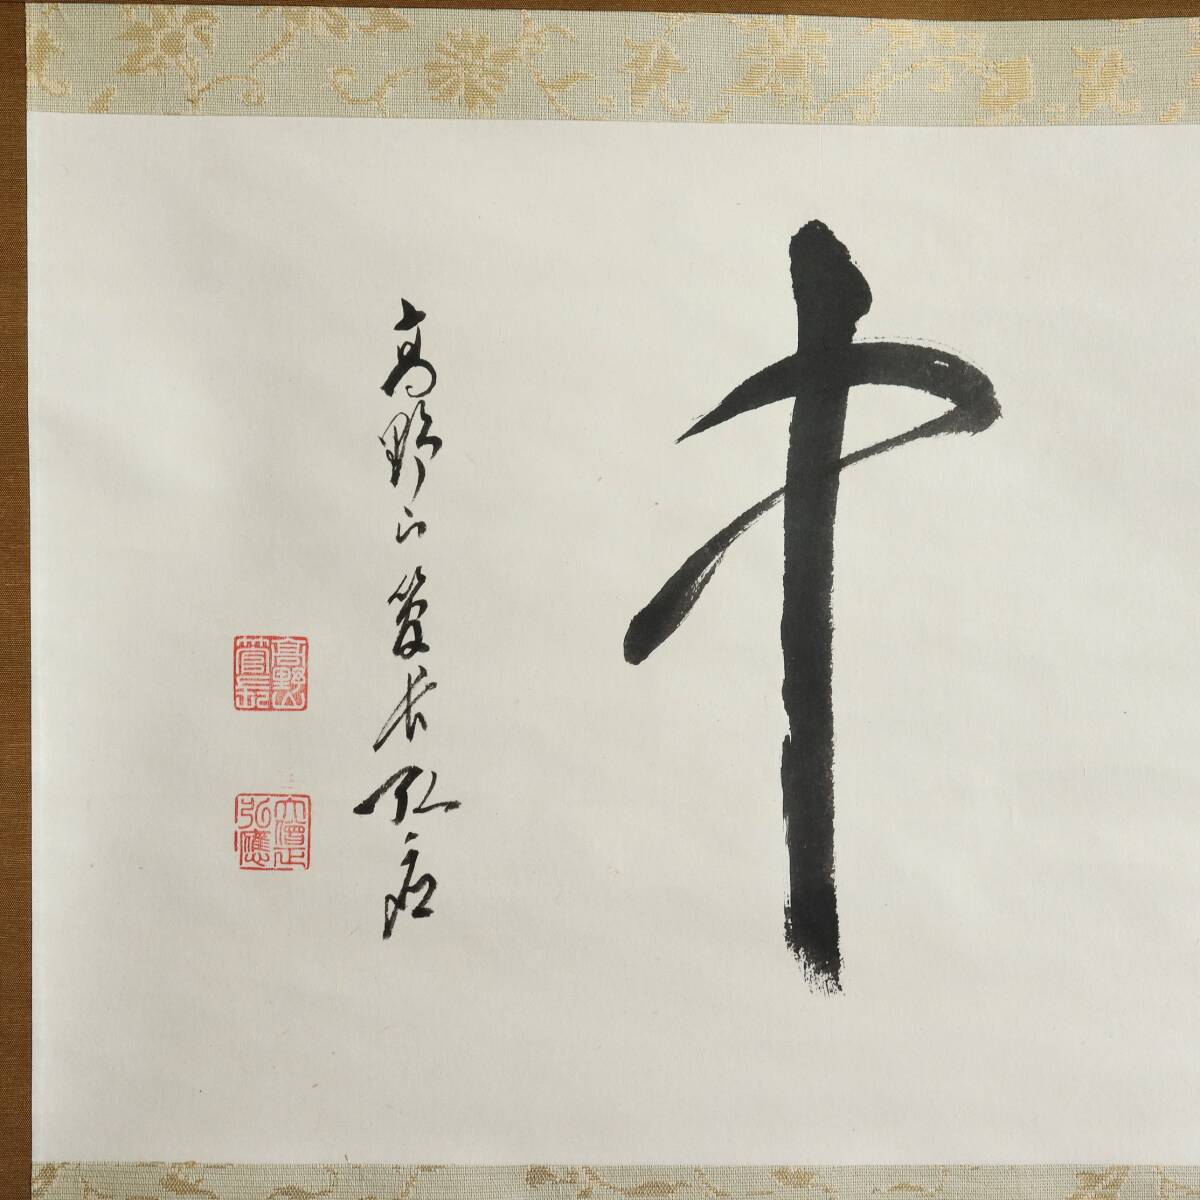 高野山管長弘應
高野山管長
大僧正弘應